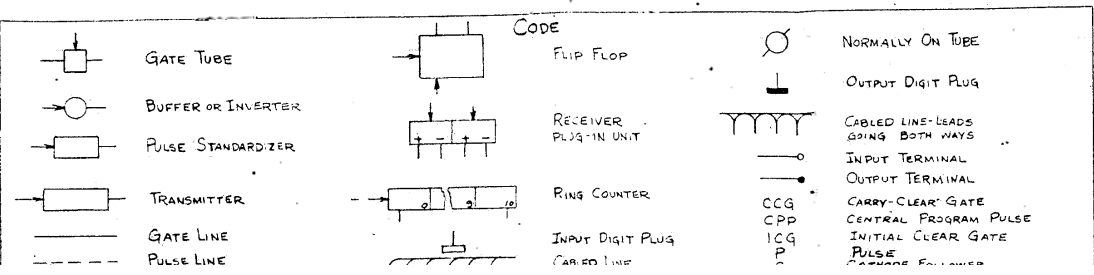 CODE
GATE TUBE
BUFFER OR INVERTER
PULSE STANDARDIZER
TRANSMITTER
GATE LINE
PULSE LINE
FLIP FLOP
+ - + -
RECEIVER
PLUG-IN UNIT
0 9 10
RING COUNTER
INPUT DIGIT PLUG
CABLED LINE
NORMALLY ON TUBE
OUTPUT DIGIT PLUG
CABLED LINE-LEADS
GOING BOTH WAYS
INPUT TERMINAL
OUTPUT TERMINAL
CCG CARRY-CLEAR GATE
CPP CENTRAL PROGRAM PULSE
ICG INITIAL CLEAR GATE
P PULSE
CATHODE FOLLOWER